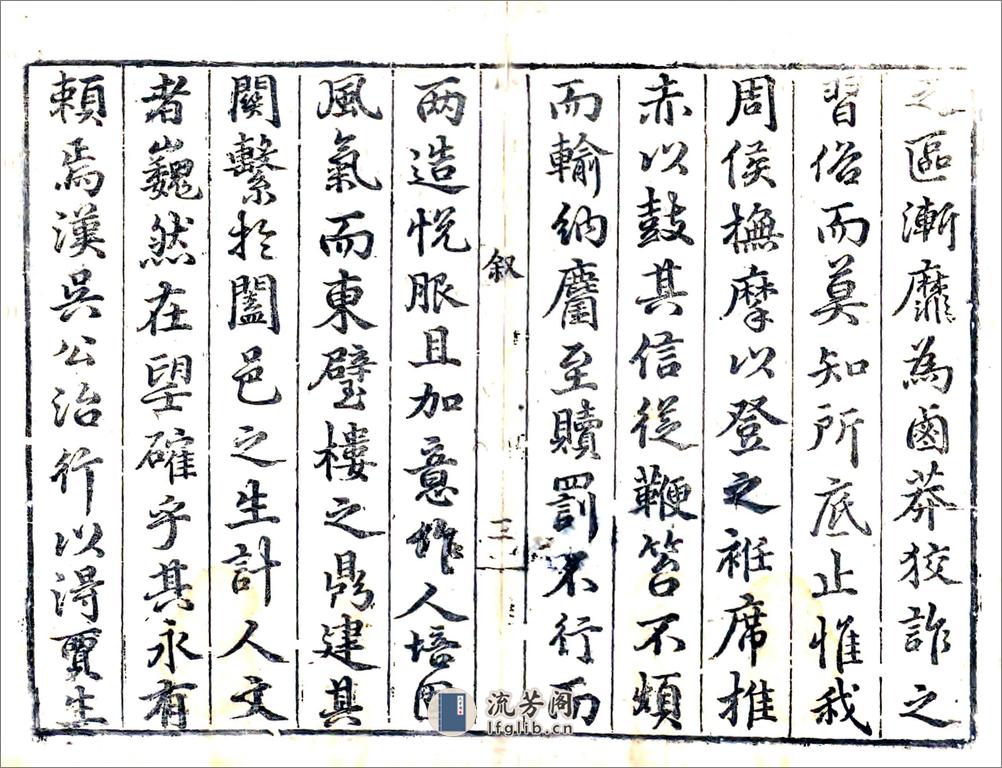 之區漸靡為鹵莽狡詐之
習俗而莫知所底止惟我
周侯撫摩以登之袵席推
赤以鼓其信從鞭笞不煩
而輸納麕至贖罰不行而
叙
三
兩造悅服且加意作人培
風氣而東璧樓之鼎建其
關繫扵闔邑之生計人文
者巍然在望確乎其永有
賴焉漢吳公治行以得賈生
流芳阁
lfglib.cn